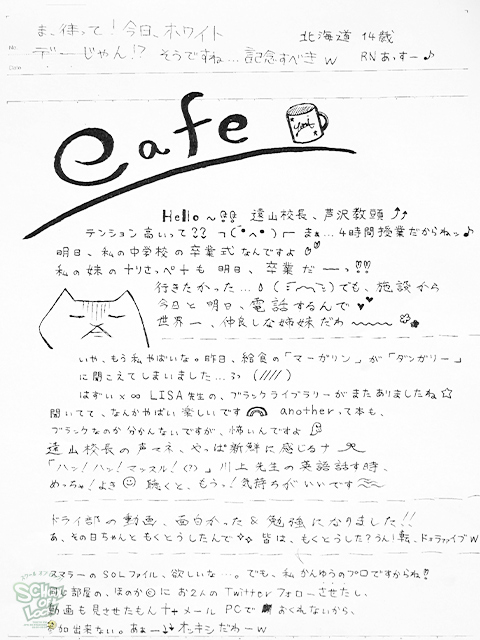 ま、待って！今日、ホワイト
デーじゃん!? そうですね…記念すべきw
北海道 14歳
RN あっすー♪
Cafe
Hello～!! 遠山校長、芦沢教頭
テンション高いって?? まぁ…4時間授業だからねッ♪
明日、私の中学校の卒業式なんですよ
私の妹の＋りさっぺ＋も明日、卒業だーっ!!
行きたかった…でも、施設から
今日と明日、電話するんで♥♥
世界一、仲良しな姉妹だわ～～～
いや、もう私やばいな。昨日、給食の「マーガリン」が「ダンガリー」
に聞こえてしまいました…ろっ (////)
はずい×∞ LISA先生の、ブラックライブラリーがまたありましたね☆
聞いてて、なんかやばい楽しいです anotherって本も、
ブラックなのか分かんないですが、怖いんですよ
遠山校長の声マネ、やっぱ新鮮に感じるナ
「ハン！ハン！マッスル！(?)」川上先生の英語話す時、
めっちゃ！よき☺ 聴くと、もうっ！気持ちがいいです
ドライ部の動画、面白かった&勉強になりました!!
あ、その日ちゃんともくとうしたんで 皆は、もくとうした？うん！転、ドゥラァイブw
スマラーのSOLファイル、欲しいな…。でも、私かんゆうのプロですからね!!
同じ部屋の、ほのか☺にお2人のTwitterフォローさせたし、
動画も見させたもん＋＋メールPCでおくれないから、
参加出来ない。あぁー オンキシだわーw
SCHOOL OF LOCK!